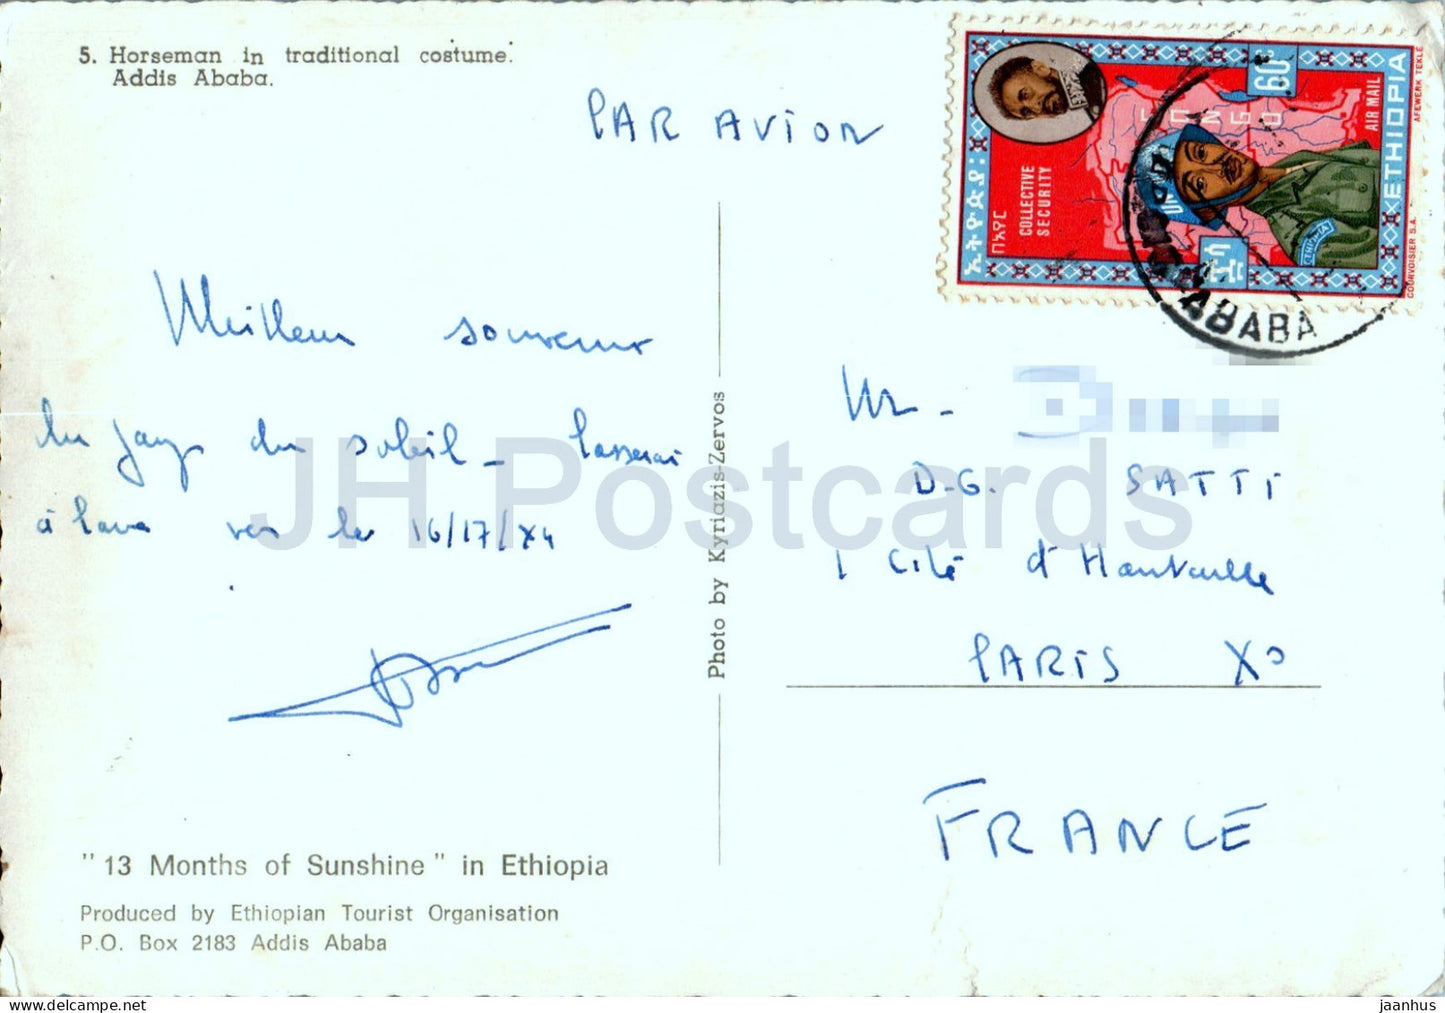 5. Horseman in traditional costume.
Addis Ababa.
PAR AVION
ኢትዮጵያ
በአየር
COLLECTIVE
SECURITY
CONGO
60
AIR MAIL
ETHIOPIA
COURVOISIER S.A.
AFEWERK TEKLE
UN
ETHIOPIA
ABABA
Meilleur souvenir
du pays du soleil - Passerai
à vers le 16/17/X4
Mr -
D.G. SATTI
1 Cité d'Hauteville
PARIS X°
FRANCE
Photo by Kyriazis-Zervos
"13 Months of Sunshine" in Ethiopia
Produced by Ethiopian Tourist Organisation
P.O. Box 2183 Addis Ababa
JH Postcards
www.delcampe.net
jaanhus